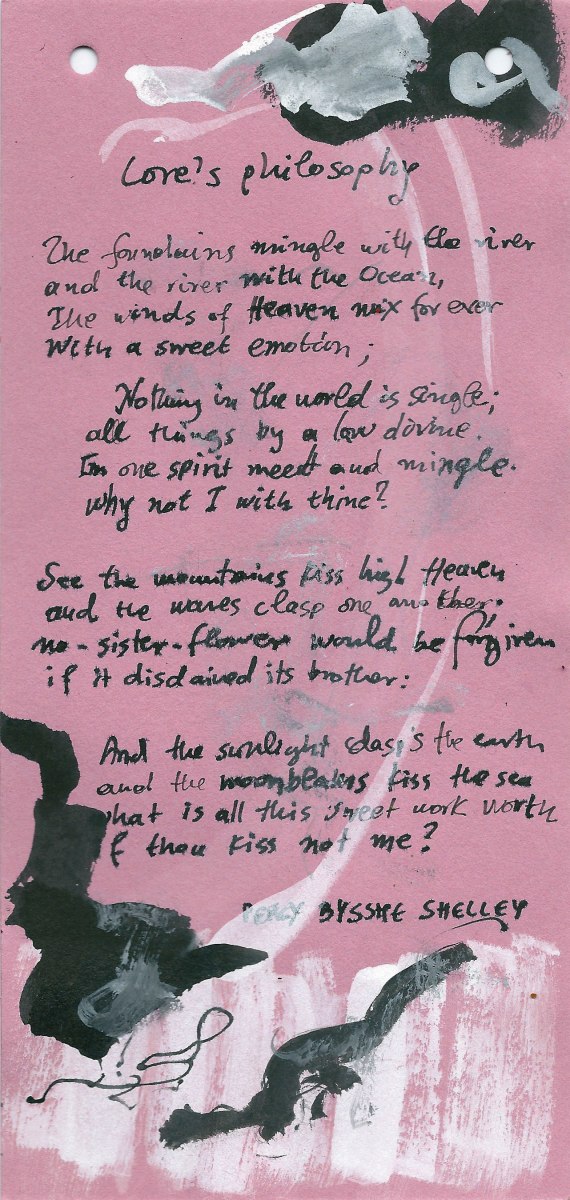 Love's philosophy
The fountains mingle with the river
and the river with the Ocean,
The winds of Heaven mix for ever
With a sweet emotion;
Nothing in the world is single;
all things by a law divine.
In one spirit meet and mingle.
why not I with thine?
See the mountains kiss high Heaven
and the waves clasp one another.
no-sister-flower would be forgiven
if it disdained its brother:
And the sunlight clasp's the earth
and the moonbleams kiss the sea
what is all this sweet work worth
if thou kiss not me?
PERCY BYSSHE SHELLEY